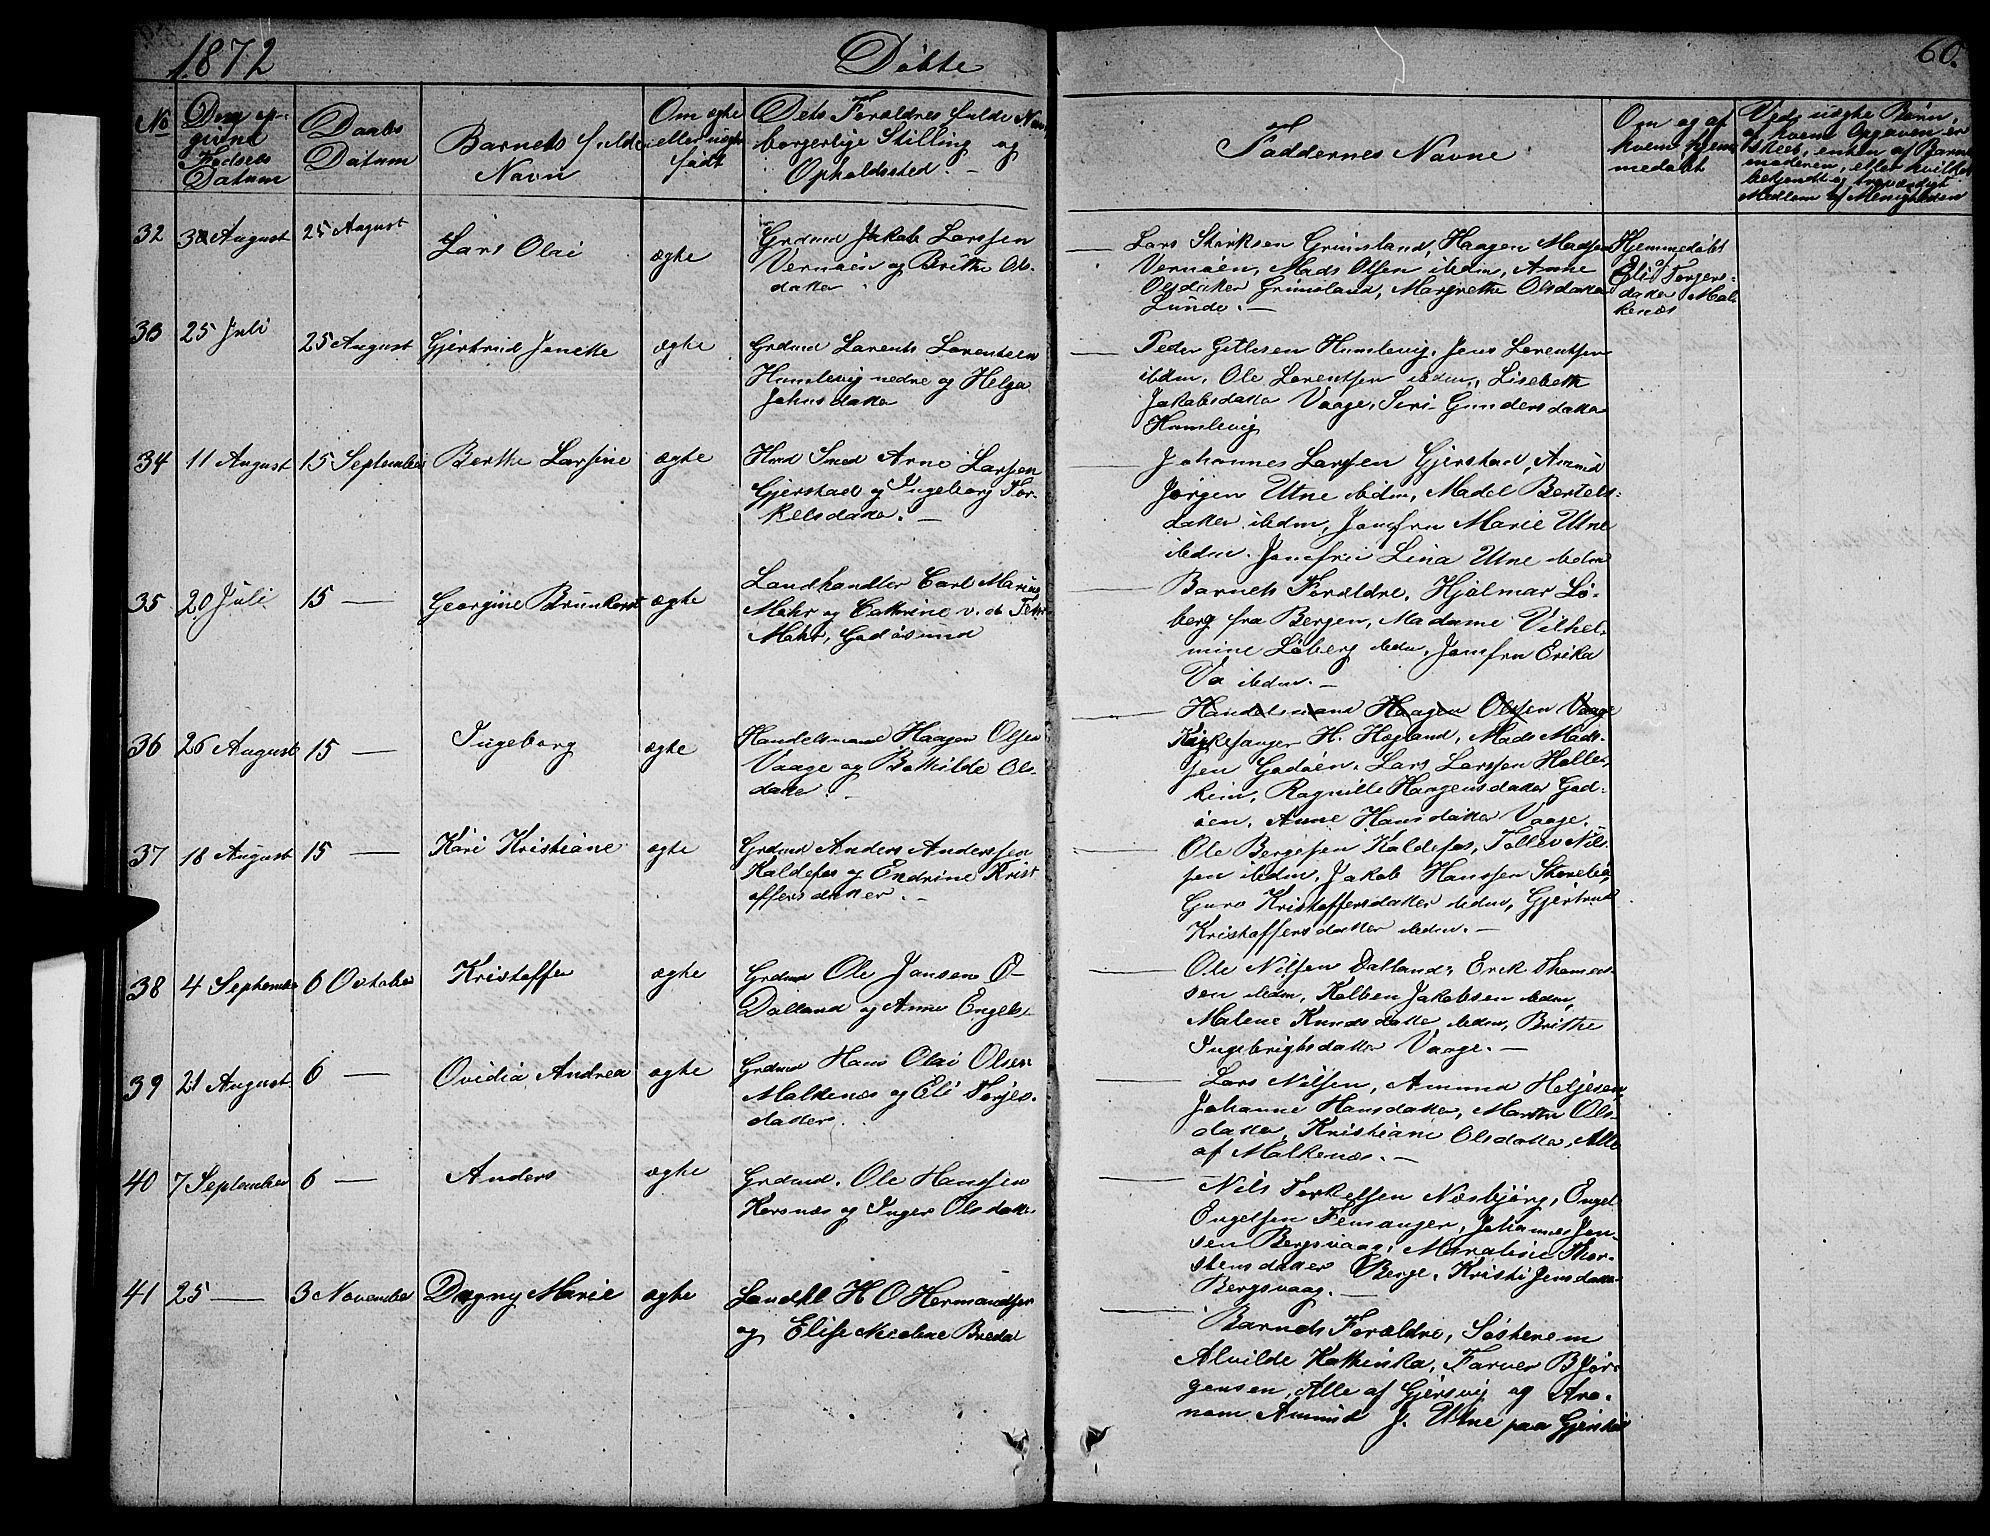 1872
Døbte
60.
No
Den op-
givne
Fødsels
Datum
Daabs
Datum
Barnets fulde
Navn
Om ægte
eller uægte
født
Dets Forældres fulde Navn
borgerlige Stilling og
Opholdssted. -
Faddernes Navne
Om og af
hvem hjem
medøbt
Ved uægte Børn,
32
August
25 August
Lars Olai
ægte
Grdmd Jakob Larssen
Vernøen og Brithe Ols-
datter
Lars Størksen Grimsland, Haagen Madsen
Vernøen, Mads Olsen ibdm, Anne
Olsdatter Grimsland, Margrethe Olsdatter
Lunde. -
Hjemmedøbt
af
Eli Torgers-
datter Mal-
kenæs
33
25 Juli
25 August
Gjertrud Janette
ægte
Grdmd Lorents Lorentsen
Humlevig nedre og Helga
Johnsdatter
Peder Gitlesen Humlevig, Jens Lorentsen
ibdm, Ole Lorentsen ibdm, Lisebeth
Jakobsdatter Vaage, Siri Gundersdatter
Humlevig
34
11 August
15 September
Berthe Larsine
ægte
Hmd Smed Arne Larsen
Gjerstad og Ingeborg Tor-
kelsdatter. -
Johannes Larssen Gjerstad, Amund
Jørgen Utne ibdm, Madel Bertels-
datter ibdm, Jomfru Marie Utne
ibdm. Jomfru Lina Utne ibdm
35
20 Juli
15 -
Georgine Brunkorst
ægte
Landhandler Carl Marius
Mohr og Cathrine v. d.
Mohr, Godøsund
Barnets Forældre, Hjalmar Lø-
berg fra Bergen, Madame Vilhel-
mine Løberg ibdm, Jomfru Erika
ibdm. -
36
26 August
15 -
Ingeborg
ægte
Handelsmand Haagen Olsen
Vaage og Bothilde Ols-
datter. -
Handelsmand Haagen Olsen Vaage
Kirkesanger H. Høgland, Mads Mads-
sen Godøen, Lars Larssen Holle-
kim, Ragnille Haagensdatter God-
øen, Anne Hansdatter Vaage.
37
18 August
15 -
Kari Kristiane
ægte
Grdmd Anders Anderssen
Kaldefos og Endrine Krist
offersdatter. -
Ole Bergesen Kaldefos, Tollev Nils-
sen ibdm, Jakob Hanssen Storebø,
Guro Kristoffersdatter ibdm, Gjertrud
Kristoffersdatter ibdm. -
38
4 September
6 October
Kristoffer
ægte
Grdmd Ole Jansen Ø-
Dalland og Anne Engels-
Ole Nilsen Dalland, Erik Thomas-
sen ibdm, Kolben Jakobsen ibdm,
Malene Knudsdatter ibdm, Brithe
Ingebrigtsdatter Vaage. -
39
21 August
6 -
Ovidia Andrea
ægte
Grdmd Hans Olai Olsen
Malkenæs og Eli Torjes-
datter.
Lars Nilsen, Amund Heljesen,
Johanne Hansdatter, Martha Ols-
datter, Kristiane Olsdatter, Alle
af Malkenæs. -
40
7 September
6 -
Anders
ægte
Grdmd. Ole Hanssen
Korsnæs og Inger Olsdatter
Nils Torkelssen Næsbjørg, Engel
Engelsen Femanger, Johannes Jen-
sen Bergsvaag, Maraline Thor-
stensdatter Berge, Kristi Jensdatter
Bergsvaag. -
41
25 -
3 November
Dagny Marie
ægte
Landhl H O Hermandsen
og Elise Nicoline Breder
Barnets Forældre, Søsteren
Alvilde Kathinka, Farver B Jør-
gensen, Alle af Gjersvig og Aro-
nom Amund J. Utne paa Gjerstad